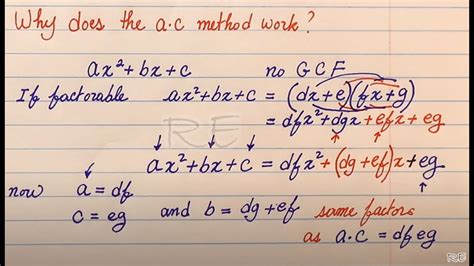 Why does the a.c method work?
ax²+bx+c no GCF
If factorable ax²+bx+c = (dx+e)(fx+g)
= dfx²+dgx+efx+eg
RE
ax²+bx+c = dfx²+(dg+ef)x+eg
now a = df
c = eg and b = dg+ef same factors
as a.c = dfeg
RE